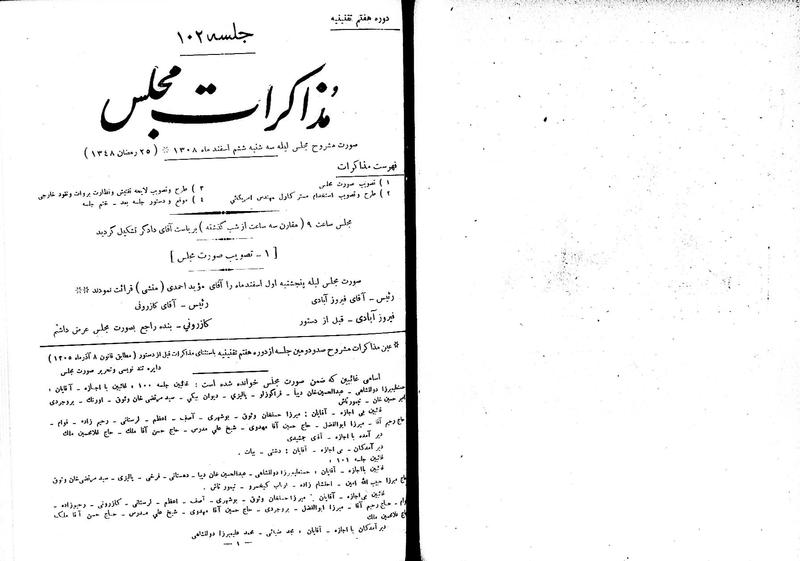 دوره هفتم تقنینیه
جلسه ۱۰۲
مذاکرات مجلس
صورت مشروح مجلس لیله سه شنبه ششم اسفند ماه ۱۳۰۸ * ( ۲۵ رمضان ۱۳۴۸ )
فهرست مذاکرات
۱ ) تصویب صورت مجلس
۲ ) طرح و تصویب استخدام مستر کاول مهندس امریکائی
۳ ) طرح و تصویب لایحه تفتیش و نظارت بروات و نقود خارجی
۴ ) موقع و دستور جلسه بعد - ختم جلسه
مجلس ساعت ۹ ( مقارن سه ساعت از شب گذشته ) بریاست آقای دادگر تشکیل گردید
[ ۱ - تصویب صورت مجلس ]
صورت مجلس لیله پنجشنبه اول اسفند ماه را آقای مؤید احمدی ( منشی ) قرائت نمودند **
رئیس - آقای فیروز آبادی
فیروز آبادی - قبل از دستور
رئیس - آقای کازرونی
کازرونی - بنده راجع بصورت مجلس عرض داشتم
* عین مذاکرات مشروح صدو دومین جلسه از دوره هفتم تقنینیه باستثنای مذاکرات قبل از دستور ( مطابق قانون ۸ آذرماه ۱۳۰۵ )
دایره تند نویسی و تحریر صورت مجلس
اسامی غائبین که ضمن صورت مجلس خوانده شده است : غائبین جلسه ۱۰۰ ، غائبین با اجازه - آقایان ،
حسنعلیمیرزا دولتشاهی - عبدالحسین خان دیبا - قراگوزلو - پالیزی - دیوان بیگی - سید مرتضی خان وثوق - اورنک - بروجردی
امیر حسین خان - تیمورتاش
غائبین بی اجازه - آقایان : میرزا حسنخان وثوق - بوشهری - آصف - اعظم - لرستانی - رحیم زاده - قوام -
حاج رحیم آقا - میرزا ابوالفضل - حاج حسین آقا مهدوی - شیخ علی مدرس - حاج حسن آقا ملک - حاج غلامحسین ملک
دیر آمده با اجازه - آقای جمشیدی
دیر آمدگان - بی اجازه - آقایان : دشتی - بیات .
غائبین جلسه ۱۰۱ ،
غائبین با اجازه - آقایان ، حسنعلیمیرزا دولتشاهی - عبدالحسین خان دیبا - دهستانی - فرخی - پالیزی - سید مرتضی خان وثوق
حاج میرزا حبیب الله امین - احتشام زاده - ارباب کیخسرو - تیمور تاش .
غائبین بی اجازه - آقایان . میرزا حسنخان وثوق - بوشهری - آصف - اعظم - لرستانی - کازرونی - رحیم زاده -
قوام - حاج رحیم آقا - میرزا ابوالفضل - بروجردی - حاج حسین آقا مهدوی - شیخ علی مدرس - حاج حسن آقا ملک
غلامحسین ملک
دیر آمدگان با اجازه - آقایان ، مجد ضیائی - محمد علیمیرزا دولتشاهی
— ۱ —